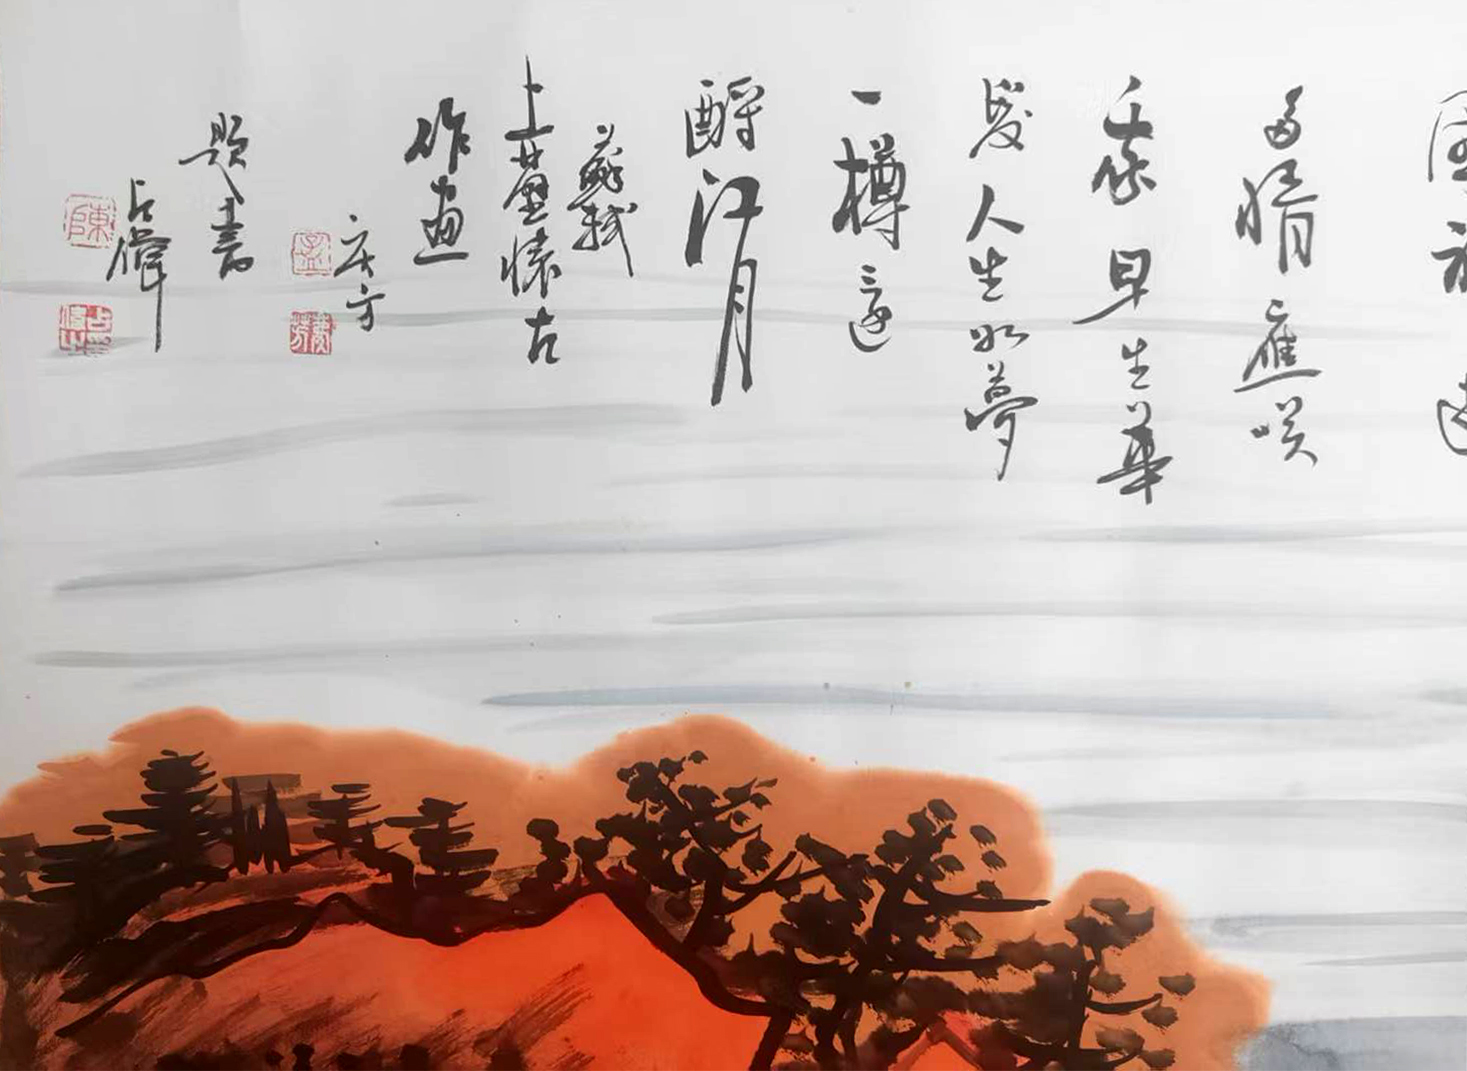 多情應笑
我早生華
髮人生如夢
一樽還
酹江月
蘇軾
赤壁懷古
作畫
題書
陳